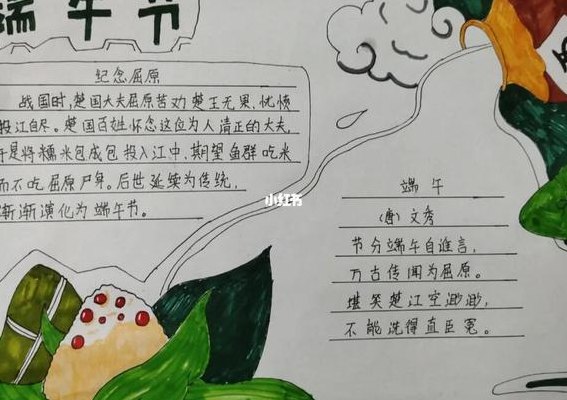 端午节
纪念屈原
战国时,楚国大夫屈原苦劝楚王无果,忧愤
投江自尽。楚国百姓怀念这位为人清正的大夫,
于是将糯米包成包投入江中,期望鱼群吃米
而不吃屈原尸身。后世延续为传统,
渐渐演化为端午节。
小红书
端午
(唐)文秀
节分端午自谁言,
万古传闻为屈原。
堪笑楚江空渺渺,
不能洗得直臣冤。